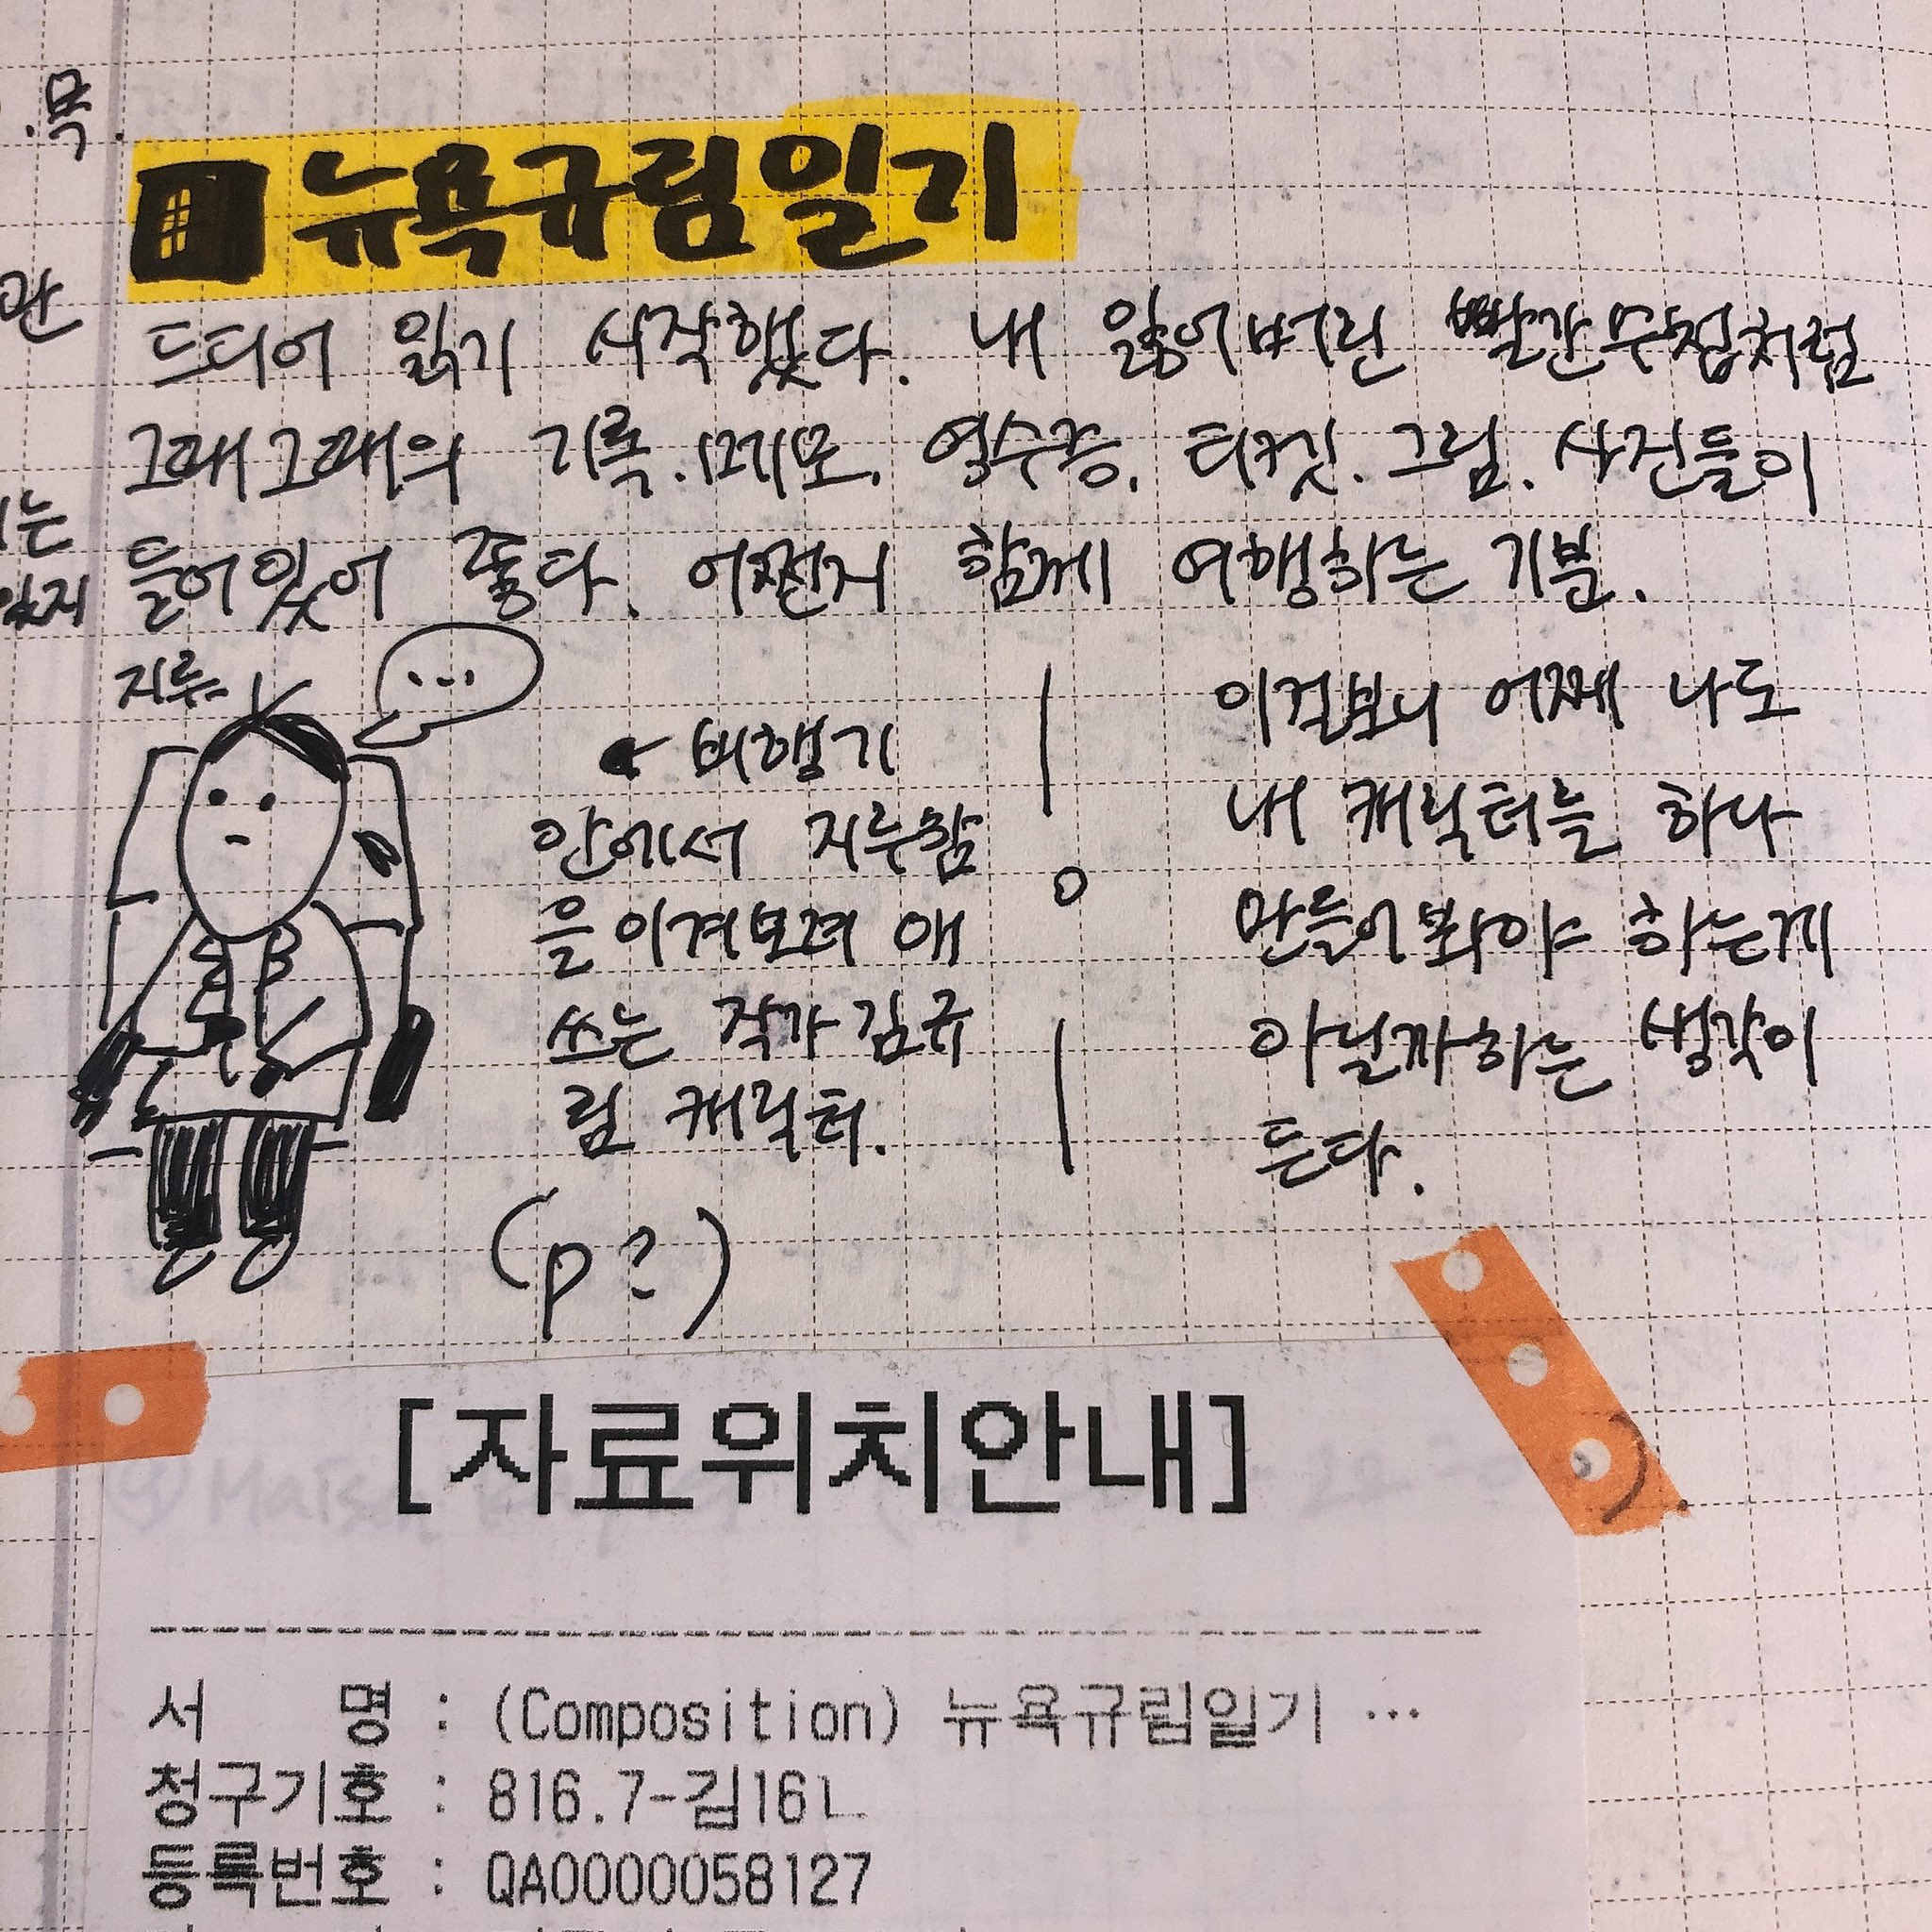 .목.
뉴욕규림일기
만
드디어 읽기 시작했다. 내 잃어버린 빨간수첩처럼
그때그때의 기록.메모. 영수증. 티켓. 그림. 사진들이
는
들어있어 좋다. 어쩐지 함께 여행하는 기분.
있지
지루~
...
비행기
안에서 지루함
을 이겨보려 애
쓰는 작가 김규
림 캐릭터.
(p 2)
이걸보니 어째 나도
내 캐릭터를 하나
만들어봐야 하는게
아닐까하는 생각이
든다.
[자료위치안내]
서 명 : (Composition) 뉴욕규림일기 …
청구기호 : 816.7-김16ㄴ
등록번호 : QA0000058127